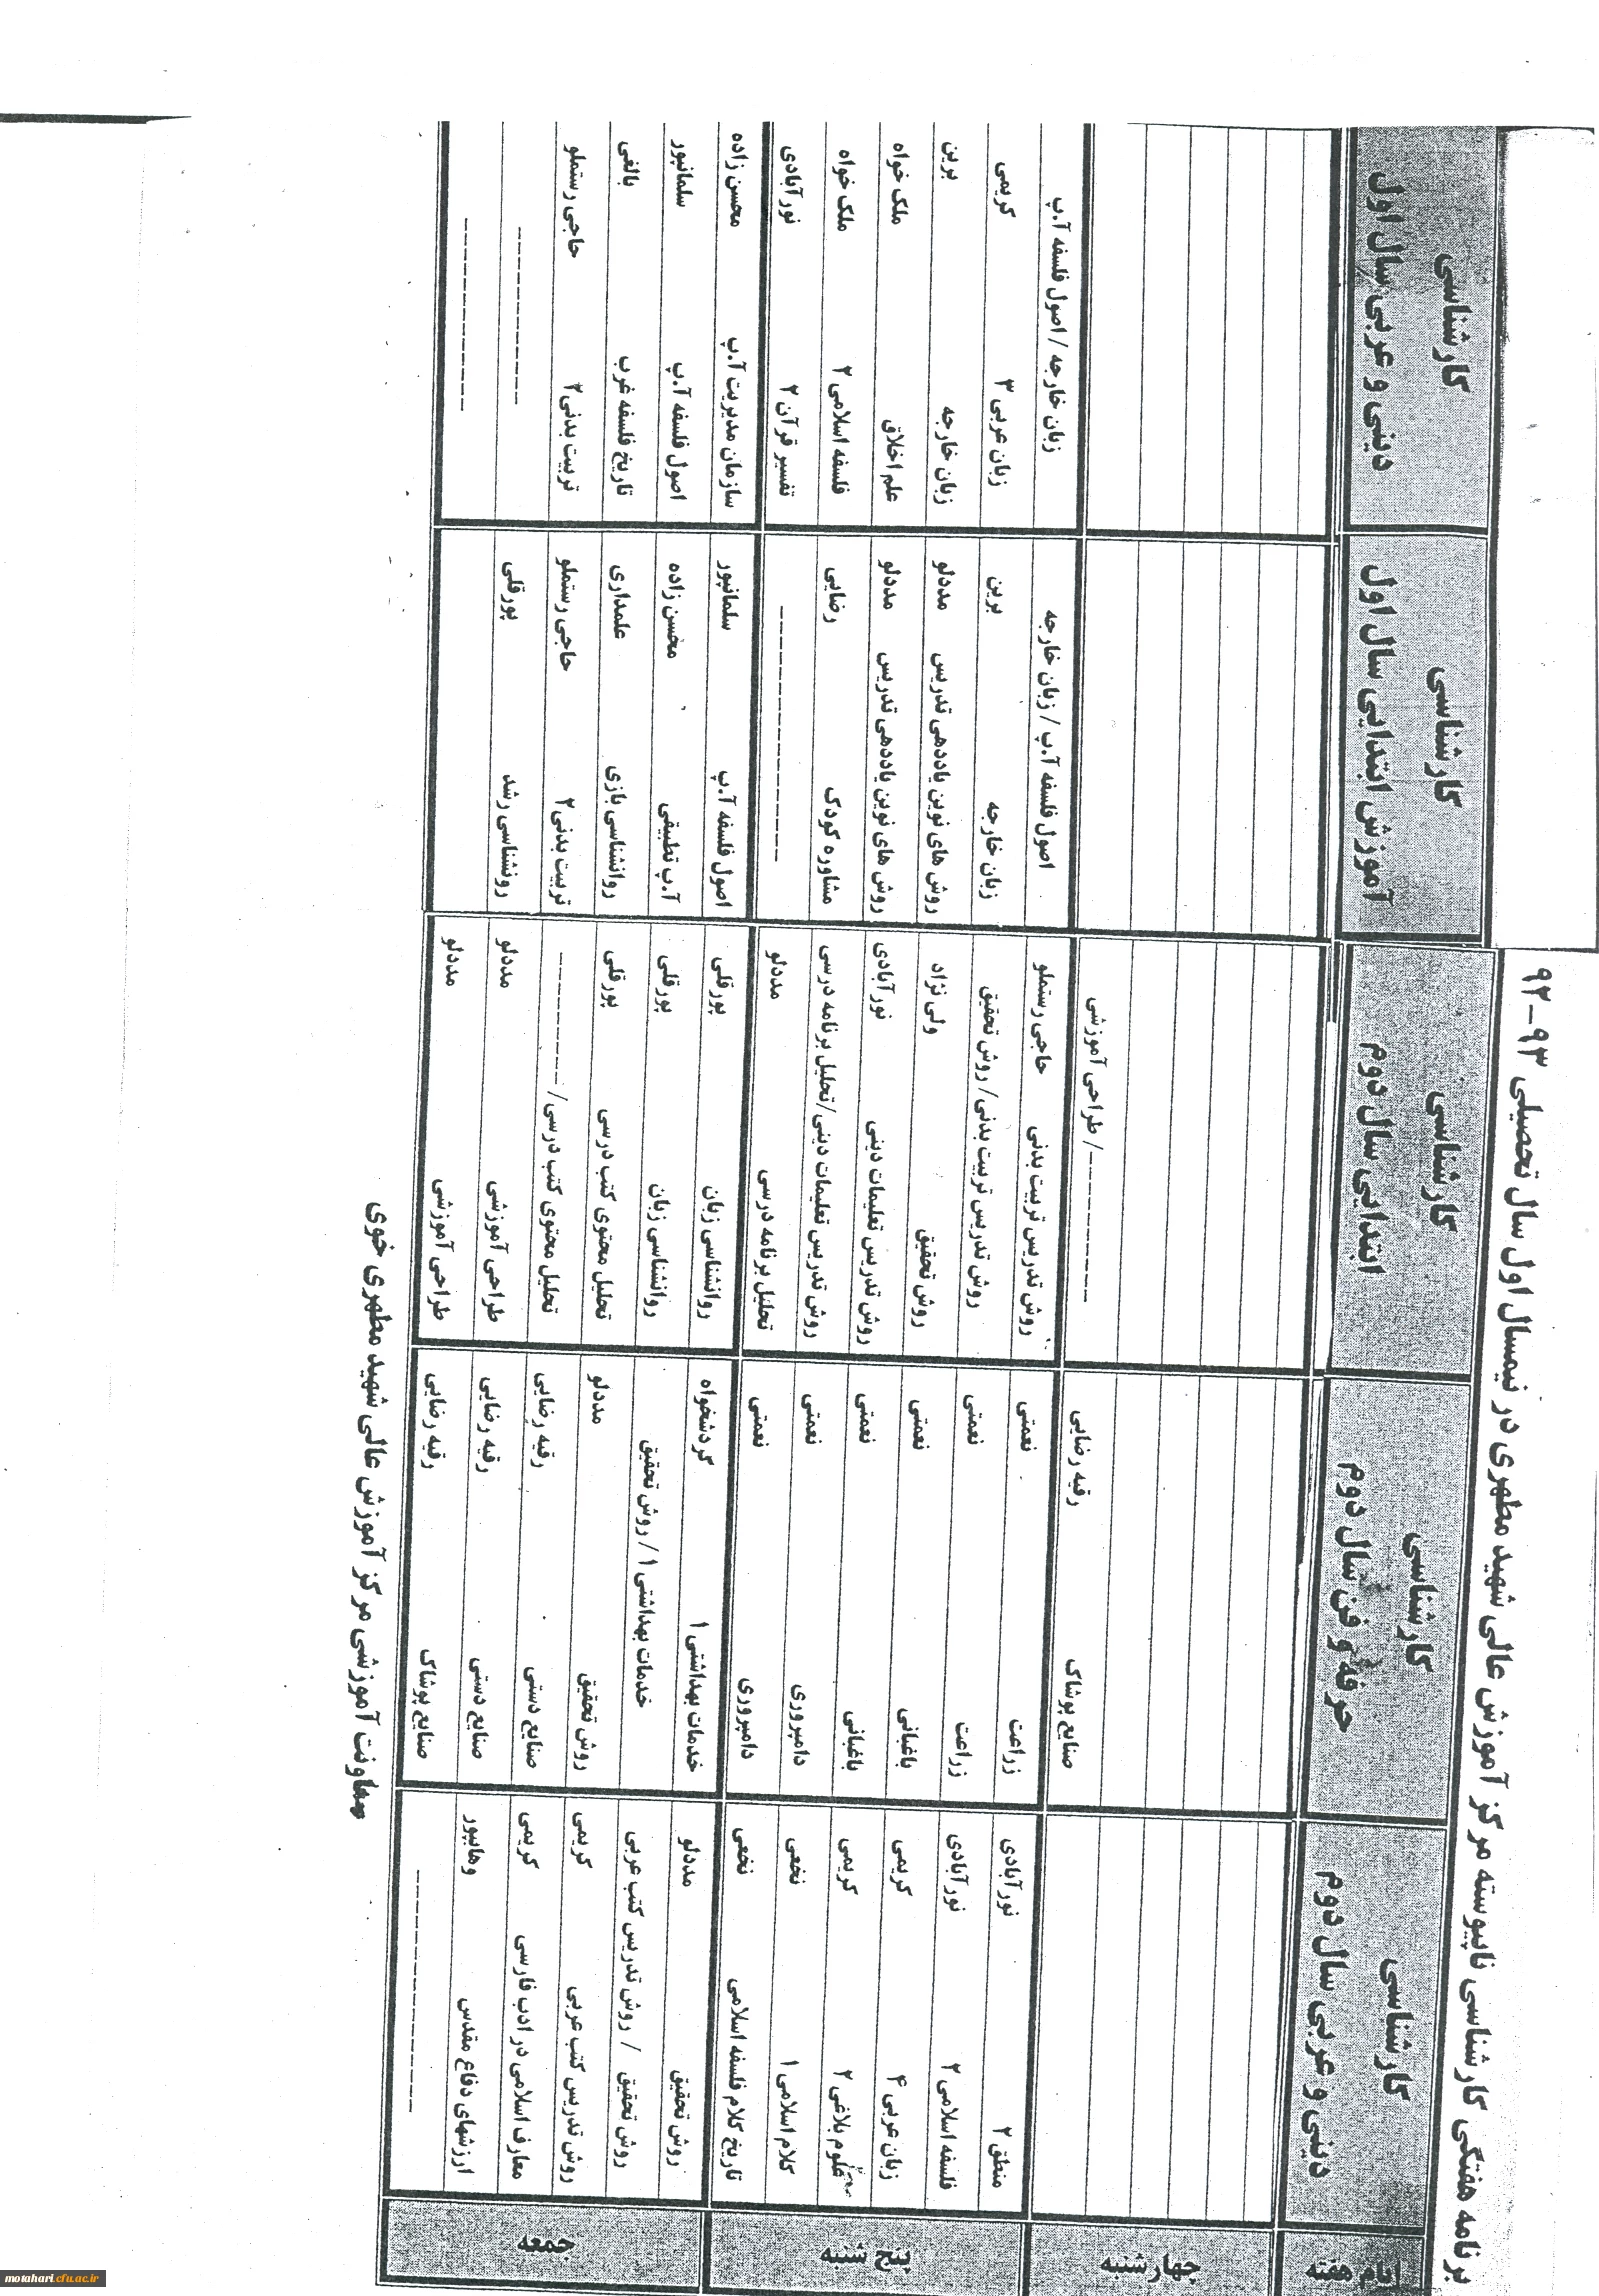 برنامه هفتگی کارشناسی ناپیوسته مرکز آموزش عالی شهید مطهری در نیمسال اول سال تحصیلی ۹۳-۹۲
ایام هفته
کارشناسی
دینی و عربی سال دوم
کارشناسی
حرفه و فن سال دوم
کارشناسی
ابتدایی سال دوم
کارشناسی
آموزش ابتدایی سال اول
کارشناسی
دینی و عربی سال اول
چهارشنبه
صنایع پوشاک رقیه رضایی
----------/ طراحی آموزشی
پنج شنبه
منطق ۲ نورآبادی
زراعت نعمتی
روش تدریس تربیت بدنی حاجی رستملو
اصول فلسفه آ.پ / زبان خارجه
زبان خارجه / اصول فلسفه آ.پ
فلسفه اسلامی ۲ نورآبادی
زراعت نعمتی
روش تدریس تربیت بدنی/ روش تحقیق
زبان خارجه برین
زبان عربی ۳ کریمی
زبان عربی ۴ کریمی
باغبانی نعمتی
روش تحقیق ولی نژاد
روش های نوین یاددهی تدریس مددلو
زبان خارجه برین
علوم بلاغی ۲ کریمی
باغبانی نعمتی
روش تدریس تعلیمات دینی نورآبادی
روش های نوین یاددهی تدریس مددلو
علم اخلاق ملک خواه
کلام اسلامی ۱ نخعی
دامپروری نعمتی
روش تدریس تعلیمات دینی/تحلیل برنامه درسی
مشاوره کودک رضایی
فلسفه اسلامی ۲ ملک خواه
تاریخ کلام فلسفه اسلامی نخعی
دامپروری نعمتی
تحلیل برنامه درسی مددلو
--------------------
تفسیر قرآن ۲ نورآبادی
جمعه
روش تحقیق مددلو
خدمات بهداشتی ۱ گردشخواه
روانشناسی زبان پورقلی
اصول فلسفه آ.پ سلمانپور
سازمان مدیریت آ.پ محسن زاده
روش تحقیق / روش تدریس کتب عربی
خدمات بهداشتی ۱ / روش تحقیق
روانشناسی زبان پورقلی
آ.پ تطبیقی محسن زاده
اصول فلسفه آ.پ سلمانپور
روش تدریس کتب عربی کریمی
روش تحقیق مددلو
تحلیل محتوی کتب درسی پورقلی
روانشناسی بازی علمداری
تاریخ فلسفه غرب بالغی
معارف اسلامی در ادب فارسی کریمی
صنایع دستی رقیه رضایی
تحلیل محتوی کتب درسی/ ----------
تربیت بدنی۲ حاجی رستملو
تربیت بدنی۲ حاجی رستملو
ارزشهای دفاع مقدس وهابپور
صنایع دستی رقیه رضایی
طراحی آموزشی مددلو
رونشناسی رشد پورقلی
--------------
--------------------
صنایع پوشاک رقیه رضایی
طراحی آموزشی مددلو
---------------
معاونت آموزشی مرکز آموزش عالی شهید مطهری خوی
motahari.cfu.ac.ir